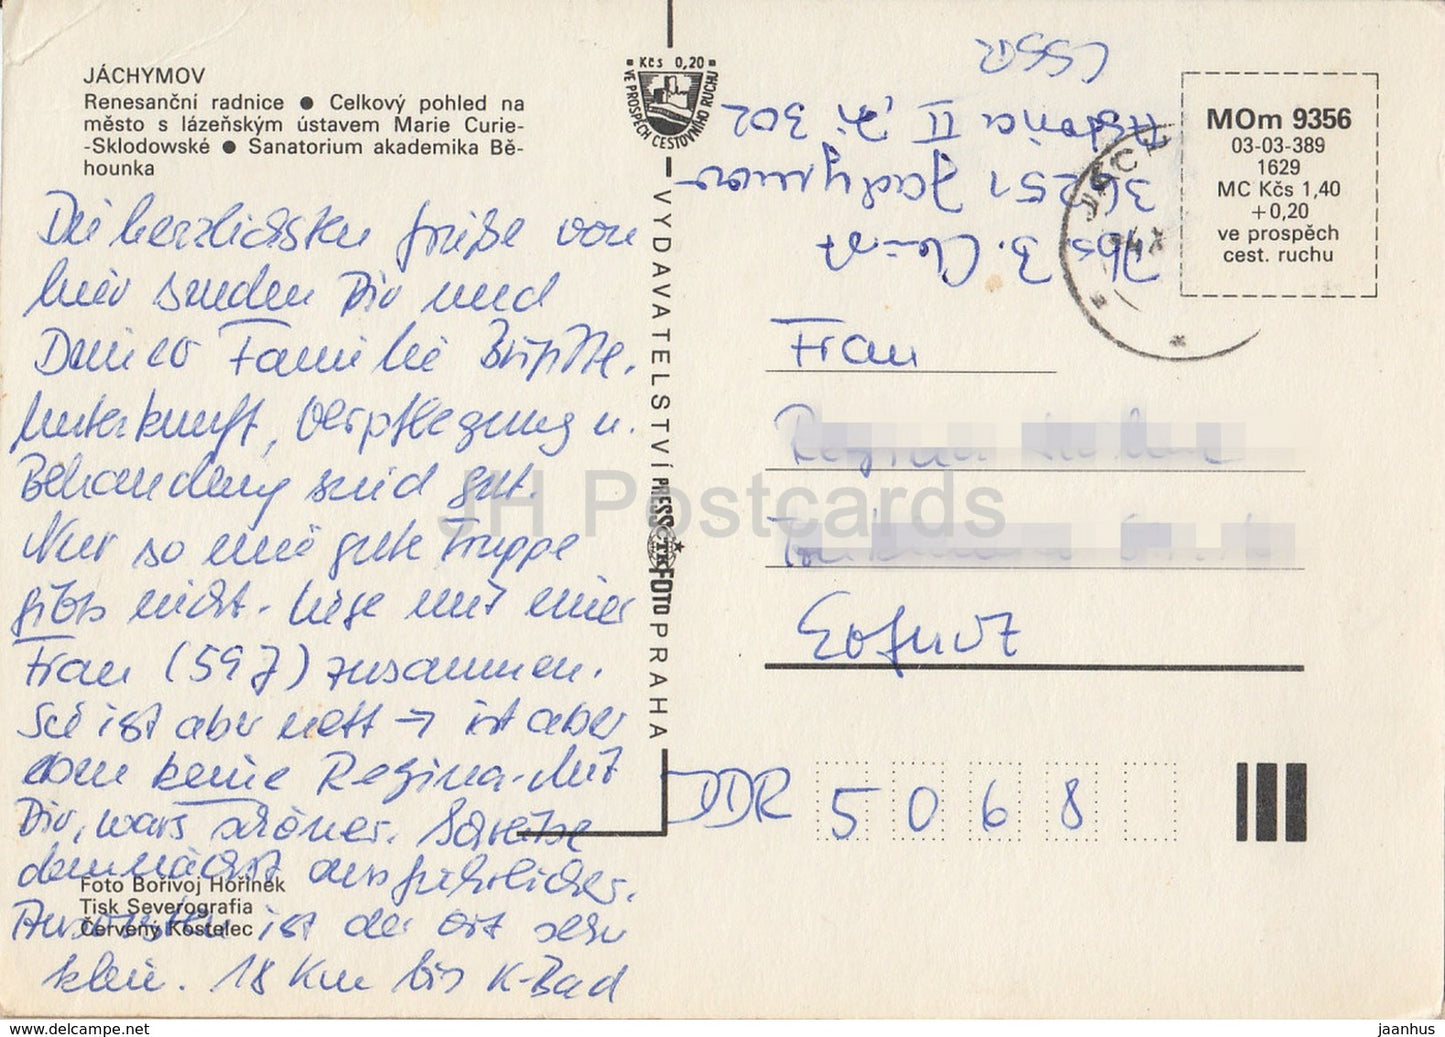 JÁCHYMOV
Renesanční radnice ● Celkový pohled na
město s lázeňským ústavem Marie Curie-
-Sklodowské ● Sanatorium akademika Bě-
hounka
Die herzlichsten Grüße von
hier senden Dir und
Deiner Familie Brigitte.
Unterkunft, Verpflegung u.
Behandlung sind gut.
Nur so eine gute Truppe
gibts nicht. Liege mit einer
Frau (59 J) zusammen.
Sie ist aber nett → ist aber
eben keine Regina. Mit
Dir, wars schöner. Schreibe
demnächst ausführlicher.
Ansonsten ist der Ort sehr
klein. 18 Km bis K-Bad
Foto Bořivoj Hořínek
Tisk Severografia
Červený Kostelec
Kčs 0,20
VE PROSPĚCH CESTOVNÍHO RUCHU
VYDAVATELSTVÍ PRESSFOTO PRAHA
ČTK
Abs. B.
36251 Jachymov
II, Zi. 302
CSSR
JÁCH
MOm 9356
03-03-389
1629
MC Kčs 1,40
+0,20
ve prospěch
cest. ruchu
Frau
Regina
Erfurt
DDR 5068
JH Postcards
www.delcampe.net
jaanhus